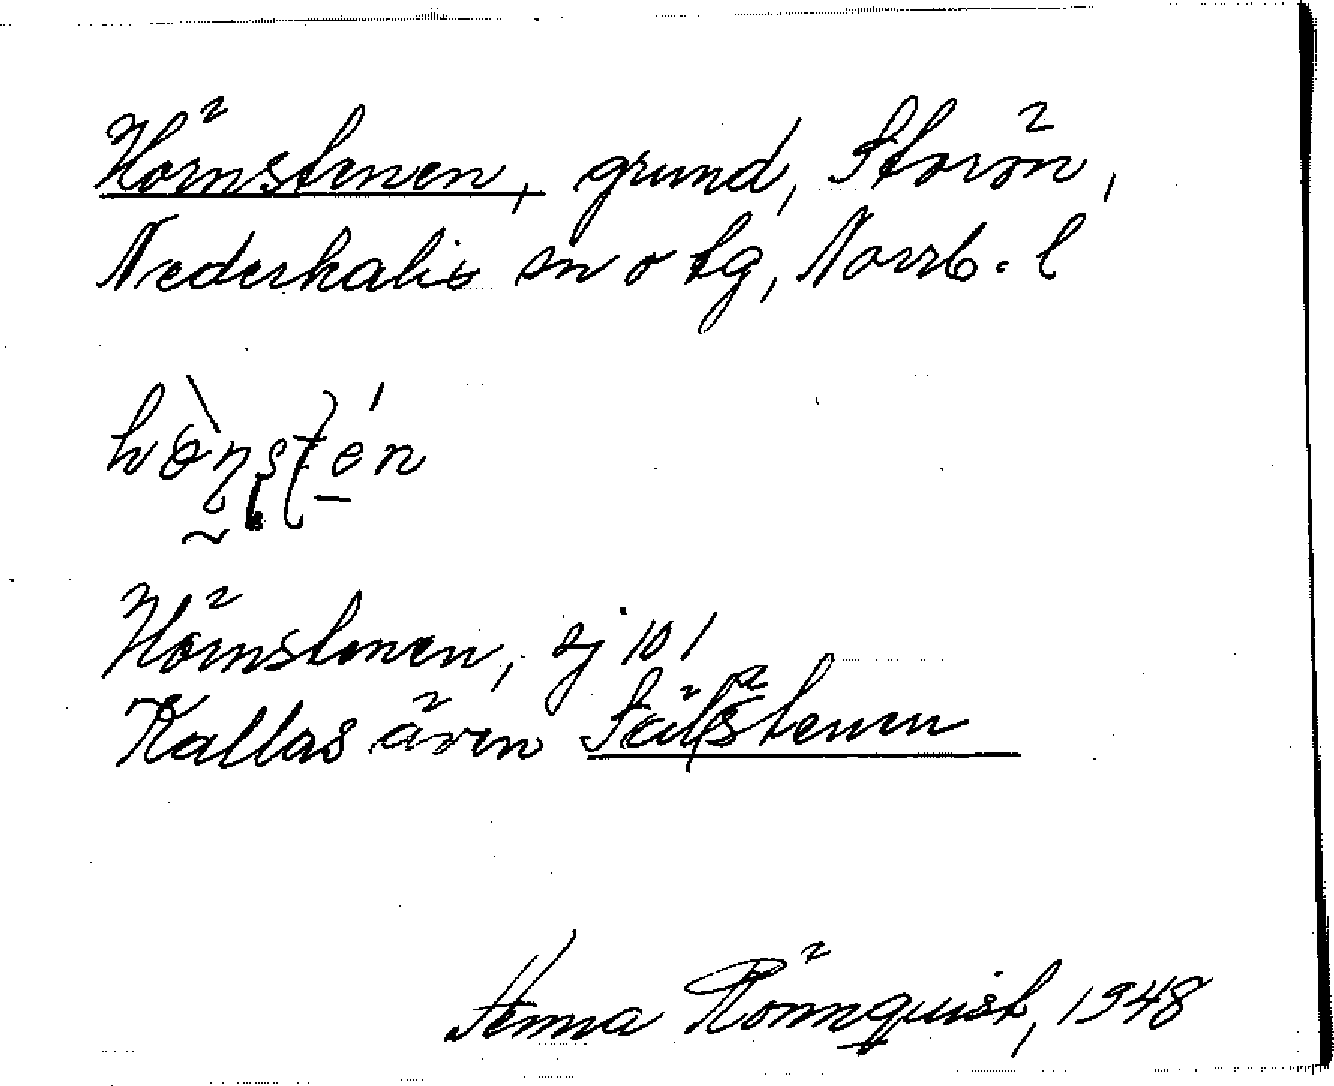 Hörnstenen, grund, Storön,
Nederkalix sn o tg, Norrb. l
Hörnstenen, sj 101
Kallas även Själstenen
Stenna Rönnquist, 1948